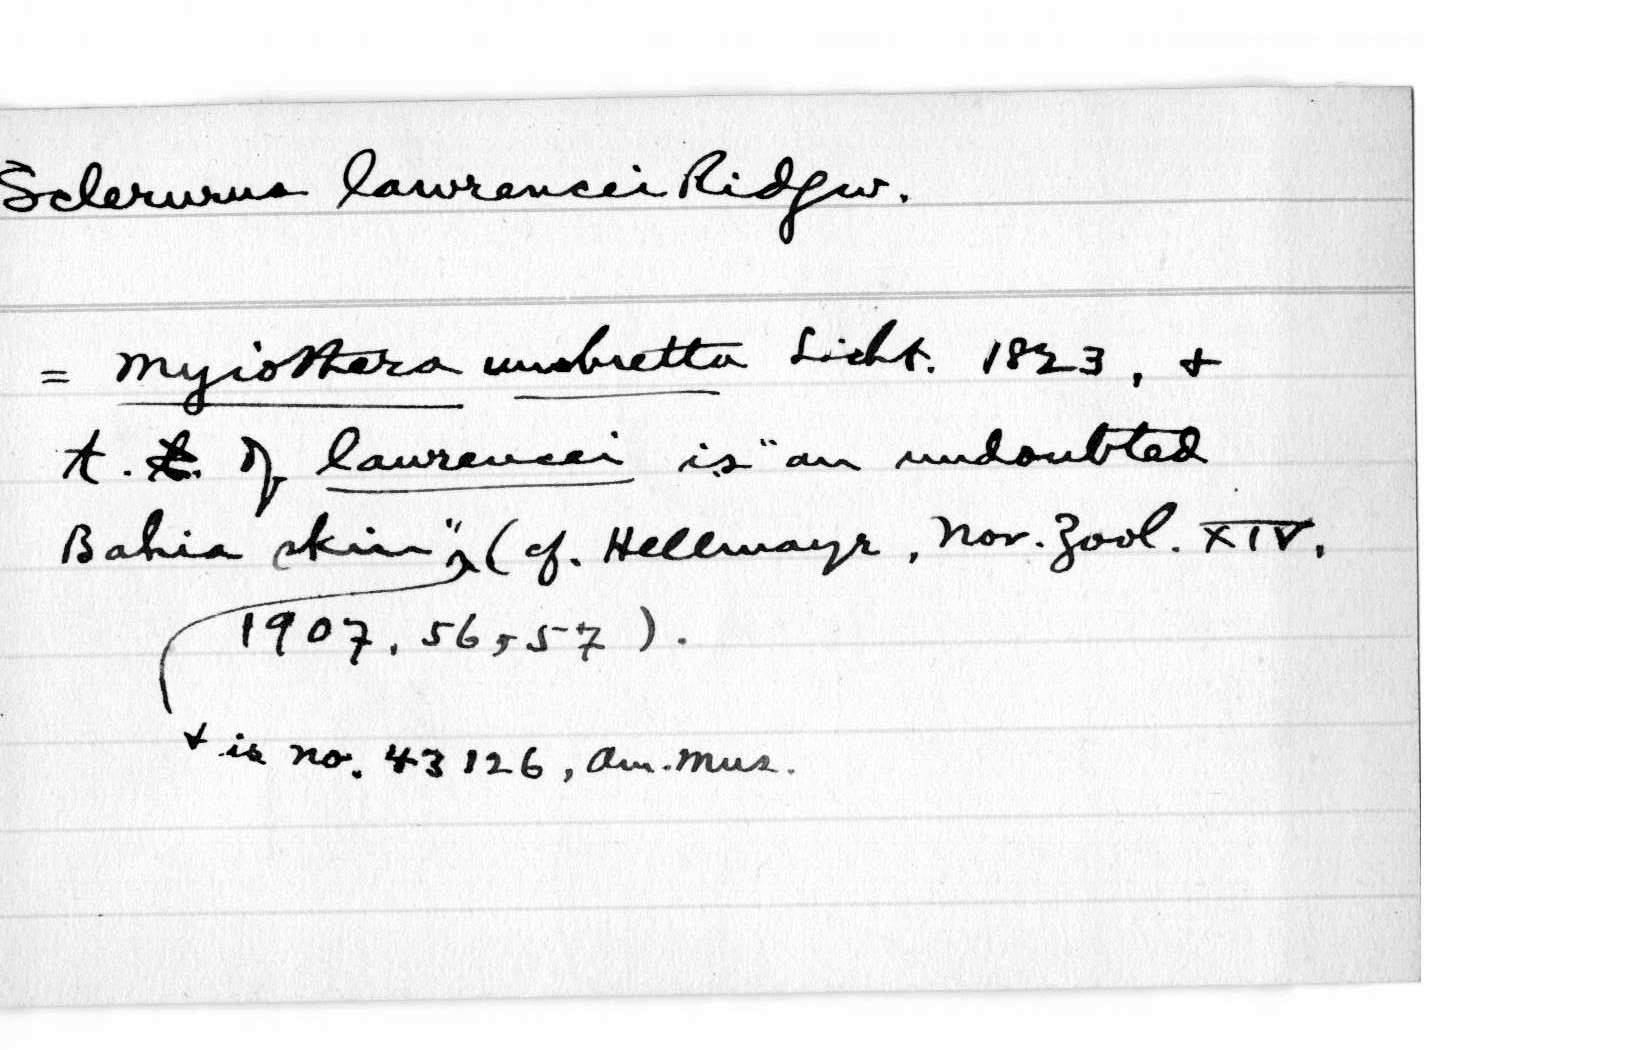 Sclerurus lawrencei Ridgw.
= Myiothera umbretta Licht. 1823, +
t. t. of lawrencei is "an undoubted
Bahia skin" (cf. Hellmayr, Nov. Zool. XIV,
1907, 56, 57).
+ is no. 43126, Am. Mus.